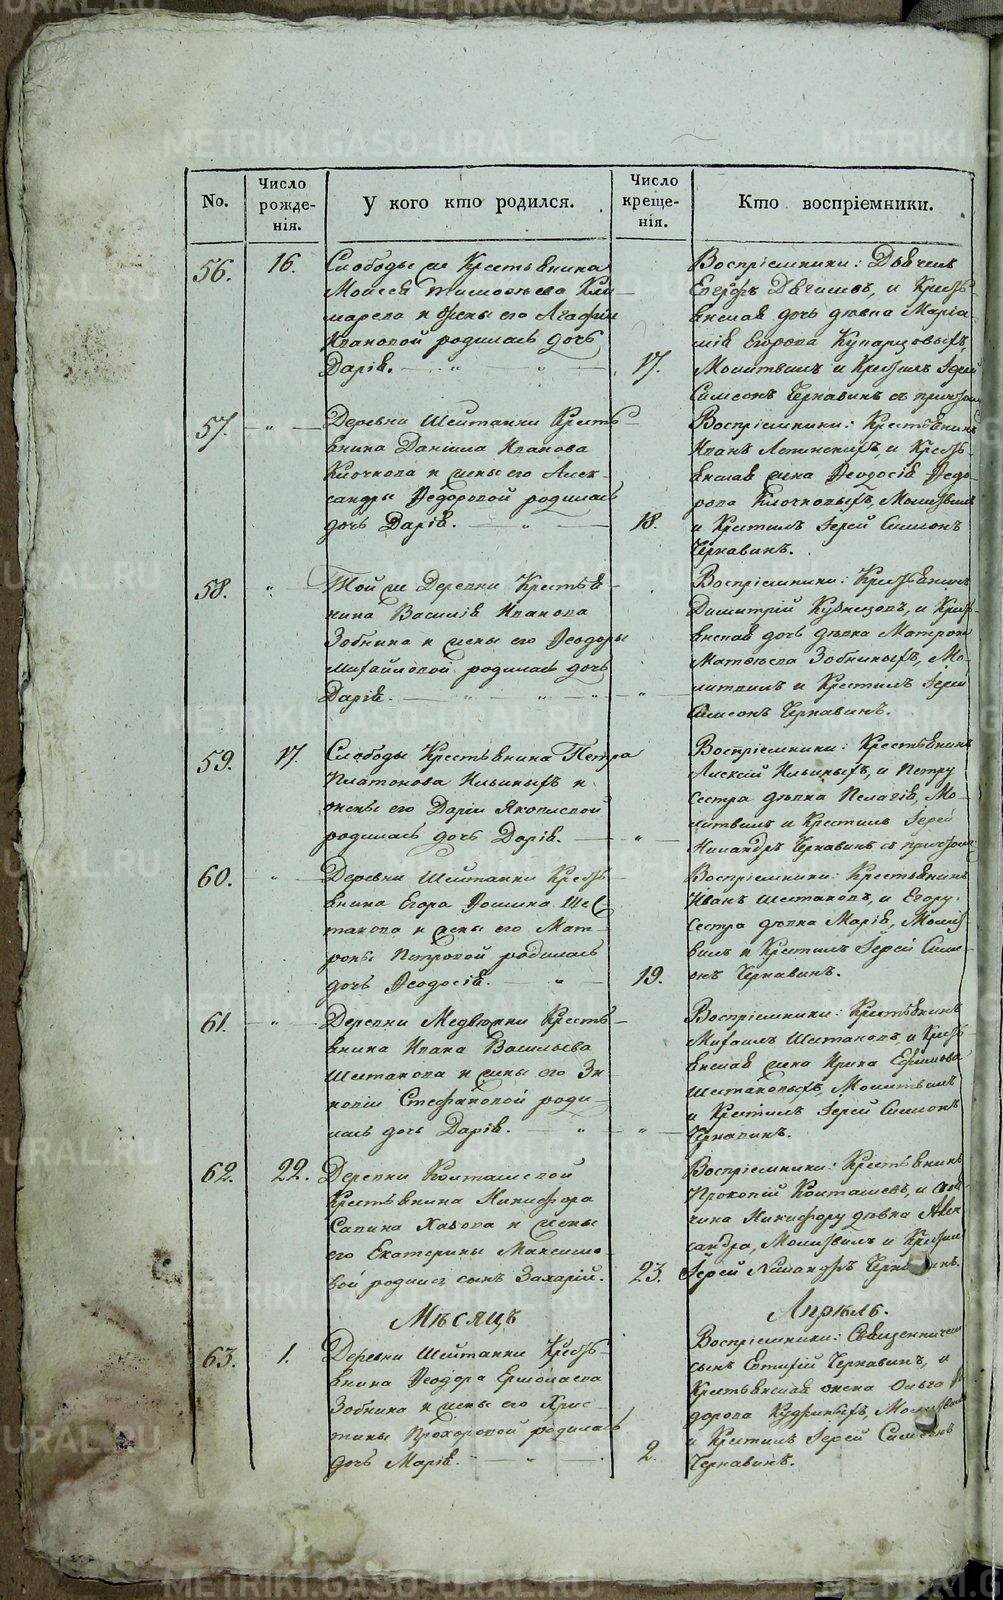 No.
Число рожде-
нія.
У кого кто родился.
Число креще-
нія.
Кто воспріемники.
56.
16.
Слободы же Крестьянина
Моисея Тимофеева
и жены его Агафіи
Ивановой родилась дочь
Дарія.
17.
Воспріемники:
Егоръ и Кресть-
янская дочь дѣвка
Егорова
Молитвилъ и Крестилъ Іерей
Симеонъ Чернавинъ съ причтомъ
57.
Деревни Шайтанки Кресть-
янина Даніила Иванова
Клочкова и жены его Алек-
сандры Ѳедоровой родилась
дочь Дарія.
18.
Воспріемники: Крестьянинъ
Иванъ и Кресть-
янская жена Ѳеодосія Ѳедо-
рова Клочковыхъ, Молитвилъ
и Крестилъ Іерей Симеонъ
Чернавинъ.
58.
Той же Деревни Крестья-
нина Василія Иванова
Зобнина и жены его Ѳеодоры
Михайловой родилась дочь
Дарія.
Воспріемники: Крестьянинъ
Димитрій Кузнецовъ, и Кресть-
янская дочь дѣвка Матрона
Матвѣева Зобниныхъ, Мо-
литвилъ и Крестилъ Іерей
Симеонъ Чернавинъ.
59.
17.
Слободы Крестьянина Петра
Платонова Ильиныхъ и
жены его Дарьи Яковлевой
родилась дочь Дарія.
Воспріемники: Крестьянинъ
Алексій Ильиныхъ, и Петру
сестра дѣвка Пелагія, Мо-
литвилъ и Крестилъ Іерей
Никандръ Чернавинъ съ причтомъ
60.
Деревни Шайтанки Кресть-
янина Егора Ѳомина Шес-
такова и жены его Мат-
роны Петровой родилась
дочь Ѳеодосія.
19.
Воспріемники: Крестьянинъ
Иванъ Шестаковъ, и Егору
сестра дѣвка Марія, Молит-
вилъ и Крестилъ Іерей Симе-
онъ Чернавинъ.
61.
Деревни Медвѣдки Кресть-
янина Ивана Васильева
Шестакова и жены его Зи-
новіи Стефановой роди-
лась дочь Дарія.
Воспріемники: Крестьянинъ
Михаилъ Шестаковъ, и Кресть-
янская жена Ирина Ефимова
Шестаковыхъ, Молитвилъ
и Крестилъ Іерей Симеонъ
Чернавинъ.
62.
22.
Деревни Колташевой
Крестьянина Никифора
Савина Хабова и жены
его Екатерины Максимо-
вой родился сынъ Захарій.
23.
Воспріемники: Крестьянинъ
Прокопій Колташевъ, и
Никифору дѣвка Алек-
сандра, Молитвилъ и Крестилъ
Іерей Никандръ Чернавинъ.
Мѣсяцъ Апрѣль.
63.
1.
Деревни Шайтанки Кресть-
янина Ѳеодора Ермолаева
Зобнина и жены его Хрис-
тины Прохоровой родилась
дочь Марія.
2.
Воспріемники: Священническій
сынъ Евгеній Чернавинъ, и
Крестьянская жена Ольга Ѳе-
дорова Молитвилъ
и Крестилъ Іерей Симеонъ
Чернавинъ.
METRIKI.GASO-URAL.RU